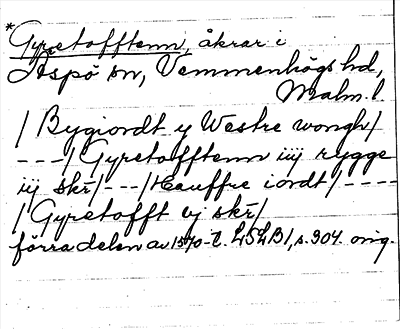 *Gyretofftenn, åkrar i
Aspö sn, Vemmenhögs hd,
Malm. l.
/ Bygiordt y Westre wongh /
--- / Gyretofftenn iiij rygge
iij skr̄ / --- / Hauffre iordt / ----
/ Gyretofft ij skr̄ /
förra delen av 1570-t. LSLB1, s. 304. orig.